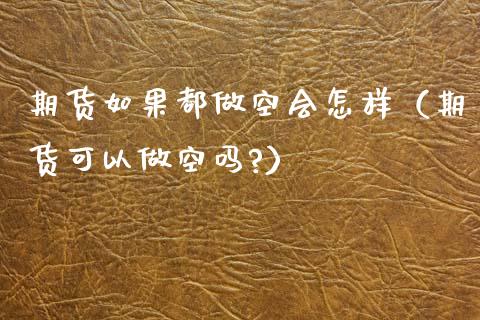 期货如果都做空会怎样（期
货可以做空吗?）